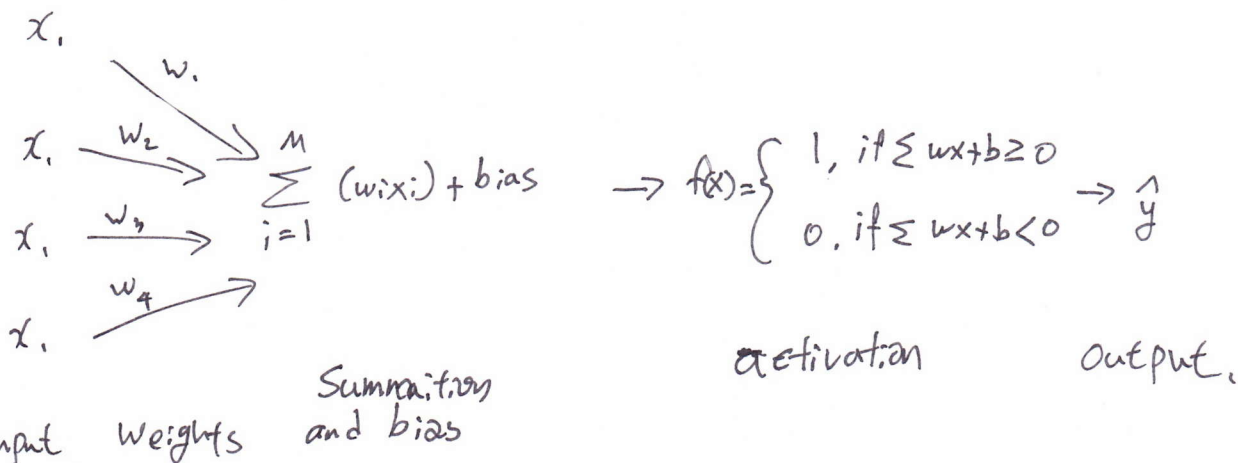 x₁
w₁
x₁ w₂
x₁ w₃
x₁ w₄
M
∑ (wixi) + bias
i=1
→ f(x)={ 1, if ∑ wx+b≥0
0, if ∑ wx+b<0
→ ŷ
nput weights Summaition and bias
activation
output.